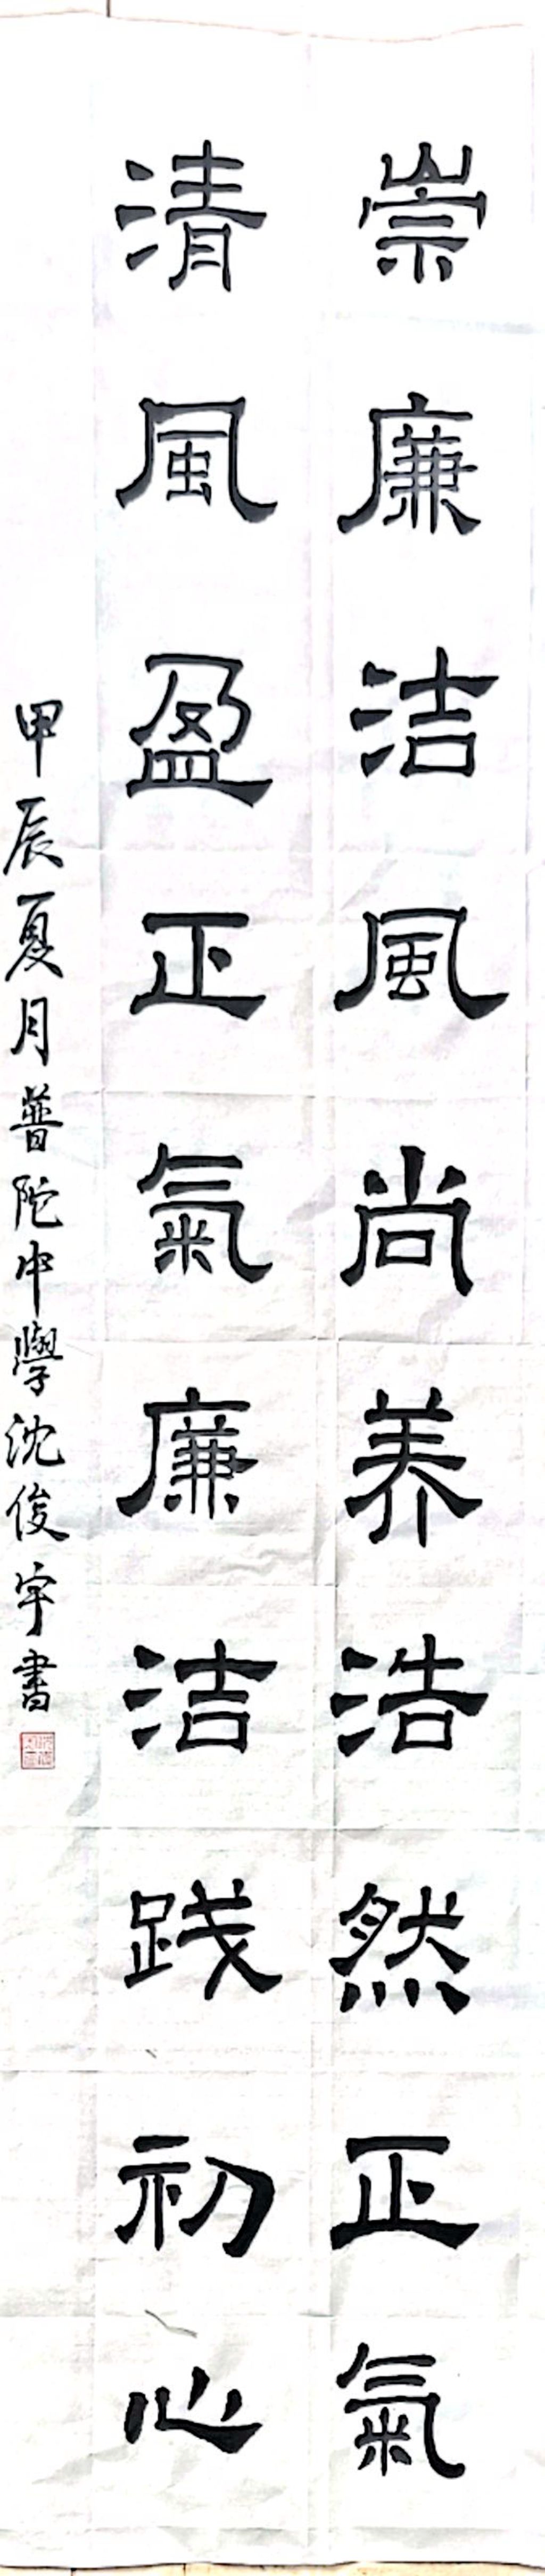 崇廉洁風尚养浩然正氣
清風盈正氣廉洁践初心
甲辰夏月普陀中學沈俊宇書